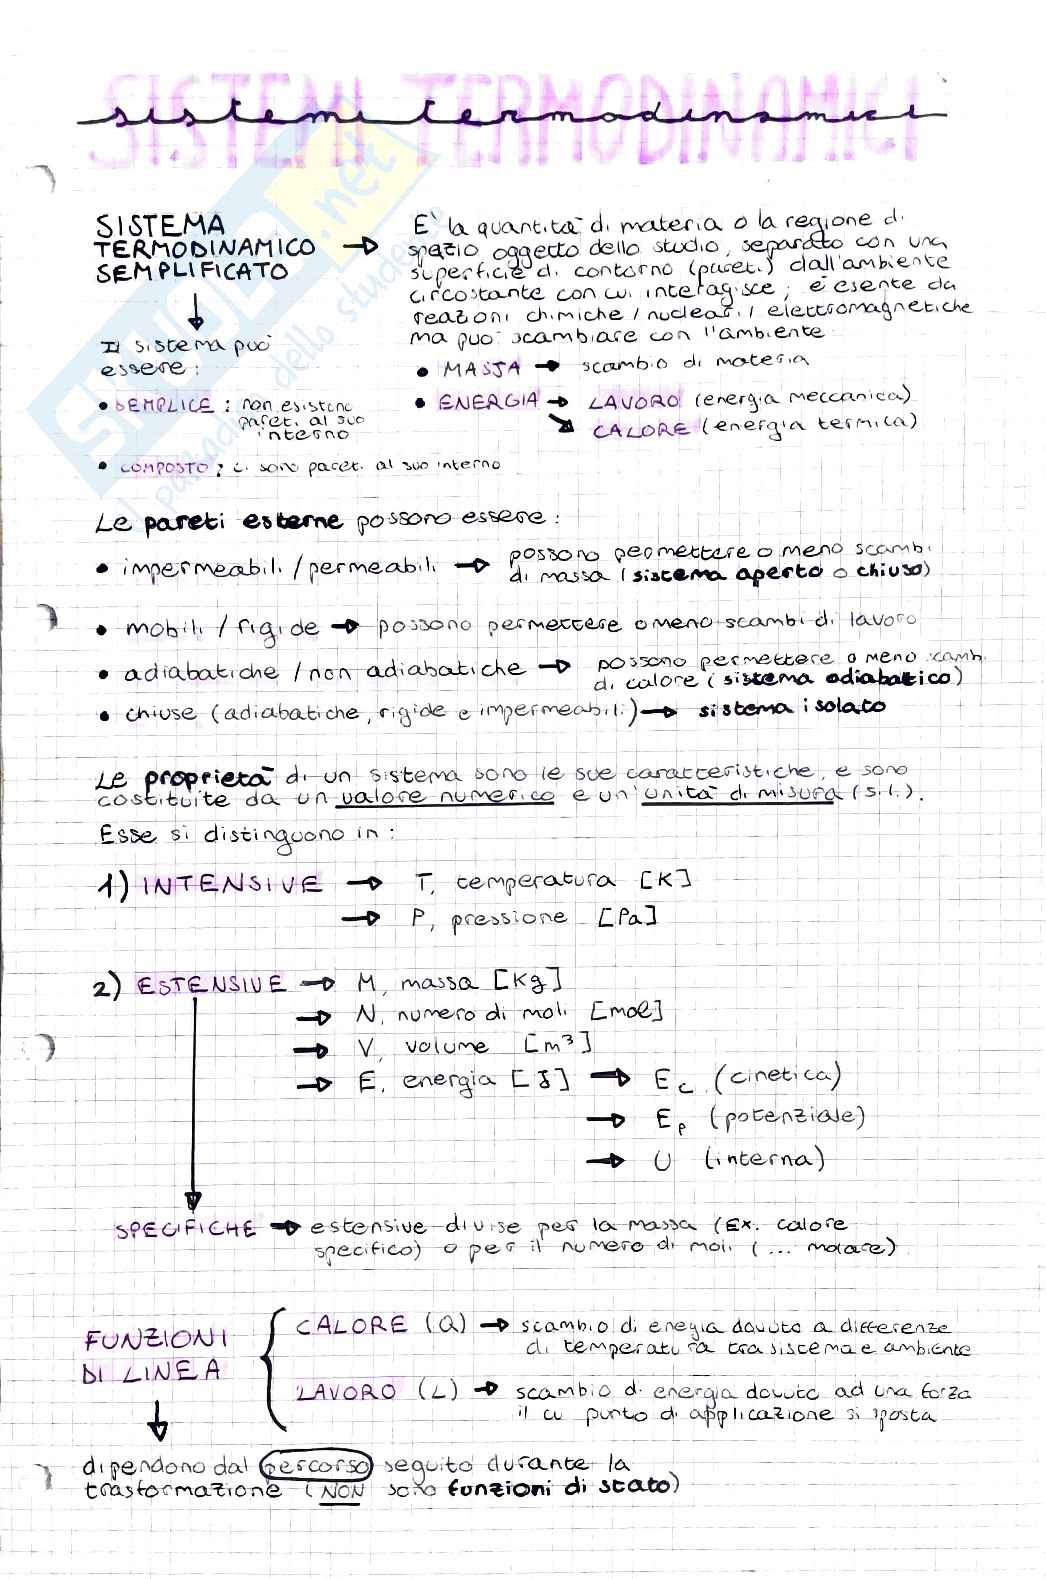 SISTEMI TERMODINAMICI
sistemi termodinamici
SKUOLA.net
il paradiso dello studente
SISTEMA
TERMODINAMICO →
SEMPLIFICATO
È la quantità di materia o la regione di
spazio oggetto dello studio, separato con una
superficie di contorno (pareti) dall'ambiente
circostante con cui interagisce; è esente da
reazioni chimiche / nucleari / elettromagnetiche
ma può scambiare con l'ambiente:
• MASSA → scambio di materia
• ENERGIA → LAVORO (energia meccanica)
↘ CALORE (energia termica)
↓
Il sistema può
essere:
• SEMPLICE: non esistono
pareti al suo
interno
• COMPOSTO: ci sono pareti al suo interno
Le pareti esterne possono essere:
• impermeabili / permeabili → possono permettere o meno scambi
di massa (sistema aperto o chiuso)
• mobili / rigide → possono permettere o meno scambi di lavoro
• adiabatiche / non adiabatiche → possono permettere o meno scambi
di calore (sistema adiabatico)
• chiuse (adiabatiche, rigide e impermeabili) → sistema isolato
Le proprietà di un sistema sono le sue caratteristiche, e sono
costituite da un valore numerico e un'unità di misura (S.I.).
Esse si distinguono in:
1) INTENSIVE → T, temperatura [K]
→ P, pressione [Pa]
2) ESTENSIVE → M, massa [Kg]
→ N, numero di moli [mol]
→ V, volume [m³]
→ E, energia [J] → Ec (cinetica)
→ Ep (potenziale)
→ U (interna)
SPECIFICHE → estensive divise per la massa (Ex. calore
specifico) o per il numero di moli (... molare)
FUNZIONI
DI LINEA
CALORE (Q) → scambio di enegia dovuto a differenze
di temperatura tra sistema e ambiente
LAVORO (L) → scambio di energia dovuto ad una forza
il cui punto di applicazione si sposta
↓
dipendono dal percorso seguito durante la
trasformazione (NON sono funzioni di stato)